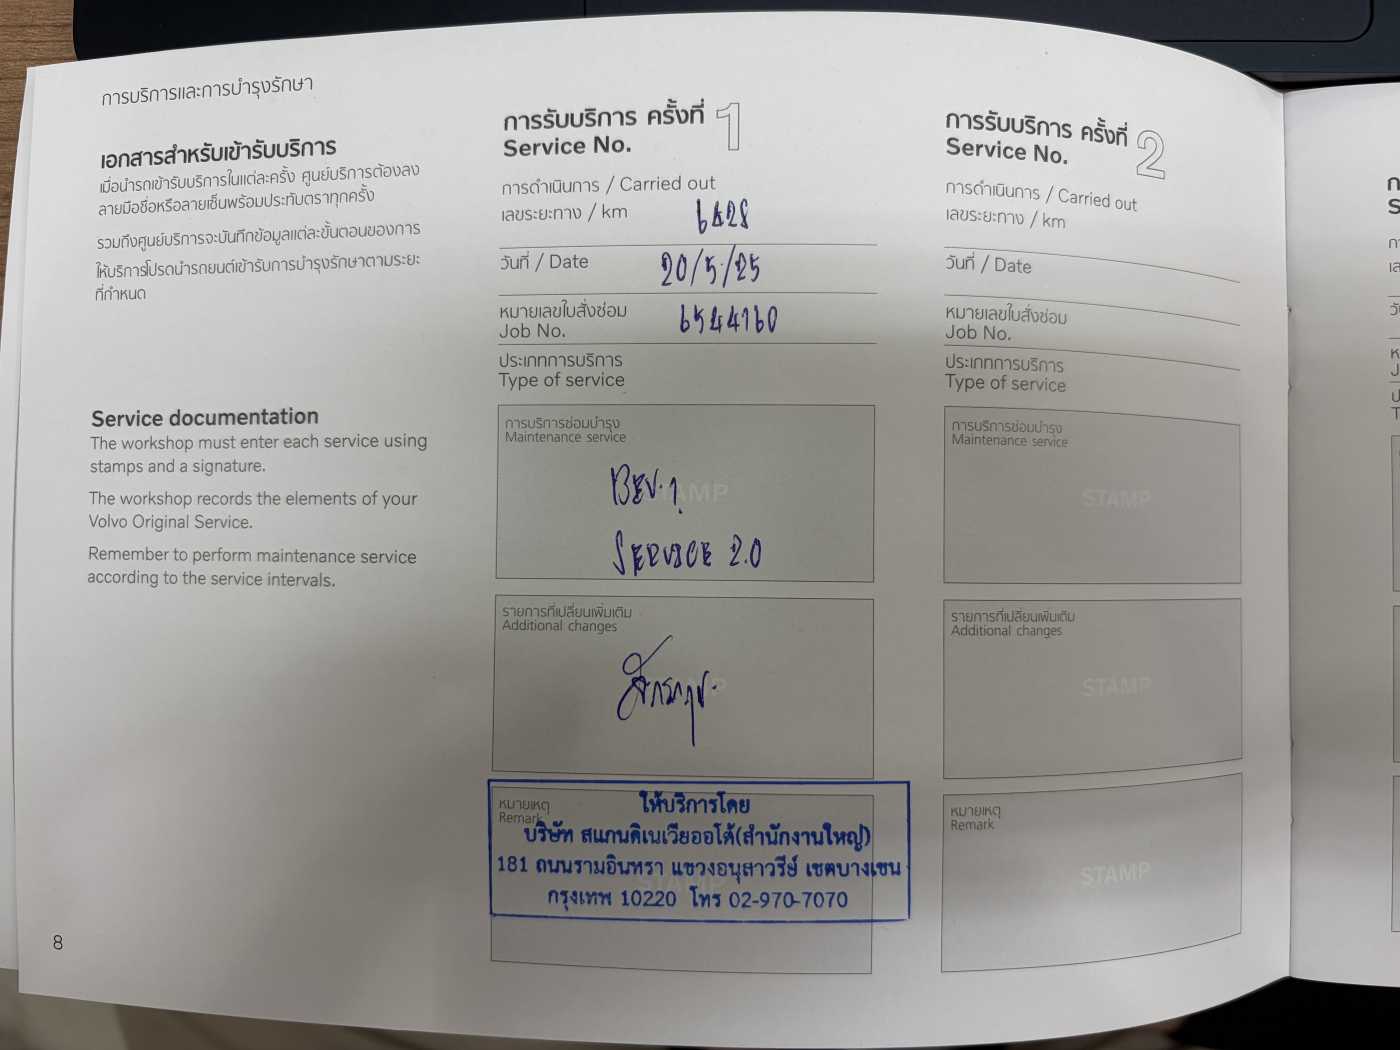 การบริการและการบำรุงรักษา
เอกสารสำหรับเข้ารับบริการ
เมื่อนำรถเข้ารับบริการในแต่ละครั้ง ศูนย์บริการต้องลง
ลายมือชื่อหรือลายเซ็นพร้อมประทับตราทุกครั้ง
รวมถึงศูนย์บริการจะบันทึกข้อมูลแต่ละขั้นตอนของการ
ให้บริการโปรดนำรถยนต์เข้ารับการบำรุงรักษาตามระยะ
ที่กำหนด
Service documentation
The workshop must enter each service using
stamps and a signature.
The workshop records the elements of your
Volvo Original Service.
Remember to perform maintenance service
according to the service intervals.
8
การรับบริการ ครั้งที่ 1
Service No.
การดำเนินการ / Carried out
เลขระยะทาง / km 6428
วันที่ / Date 20/5/25
หมายเลขใบสั่งซ่อม
Job No. 6544160
ประเภทการบริการ
Type of service
การบริการซ่อมบำรุง
Maintenance service
STAMP
BEV.1
SERVICE 2.0
รายการที่เปลี่ยนเพิ่มเติม
Additional changes
หมายเหตุ
Remark
ให้บริการโดย
บริษัท สแกนดิเนเวียออโต้(สำนักงานใหญ่)
181 ถนนรามอินทรา แขวงอนุสาวรีย์ เขตบางเขน
กรุงเทพ 10220 โทร 02-970-7070
การรับบริการ ครั้งที่ 2
Service No.
การดำเนินการ / Carried out
เลขระยะทาง / km
วันที่ / Date
หมายเลขใบสั่งซ่อม
Job No.
ประเภทการบริการ
Type of service
การบริการซ่อมบำรุง
Maintenance service
STAMP
รายการที่เปลี่ยนเพิ่มเติม
Additional changes
STAMP
หมายเหตุ
Remark
STAMP